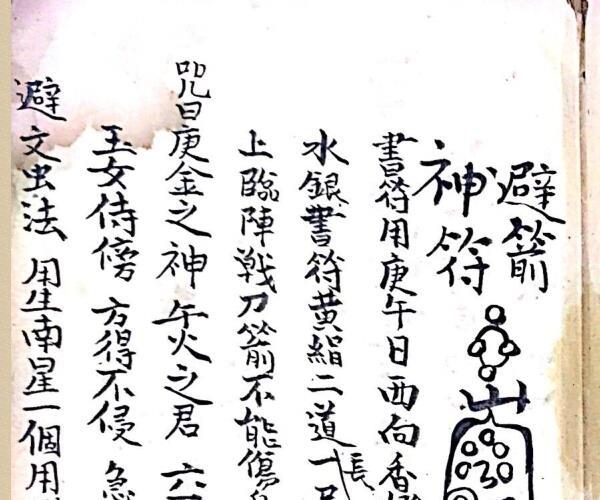 避箭
神符
書符用庚午日西向香
水銀書符黄絹二道一尺長
上臨陣戰刀箭不能傷身
咒曰庚金之神 午火之君 六
玉女侍傍 方得不侵 急
避文虫法 用生南星一個用